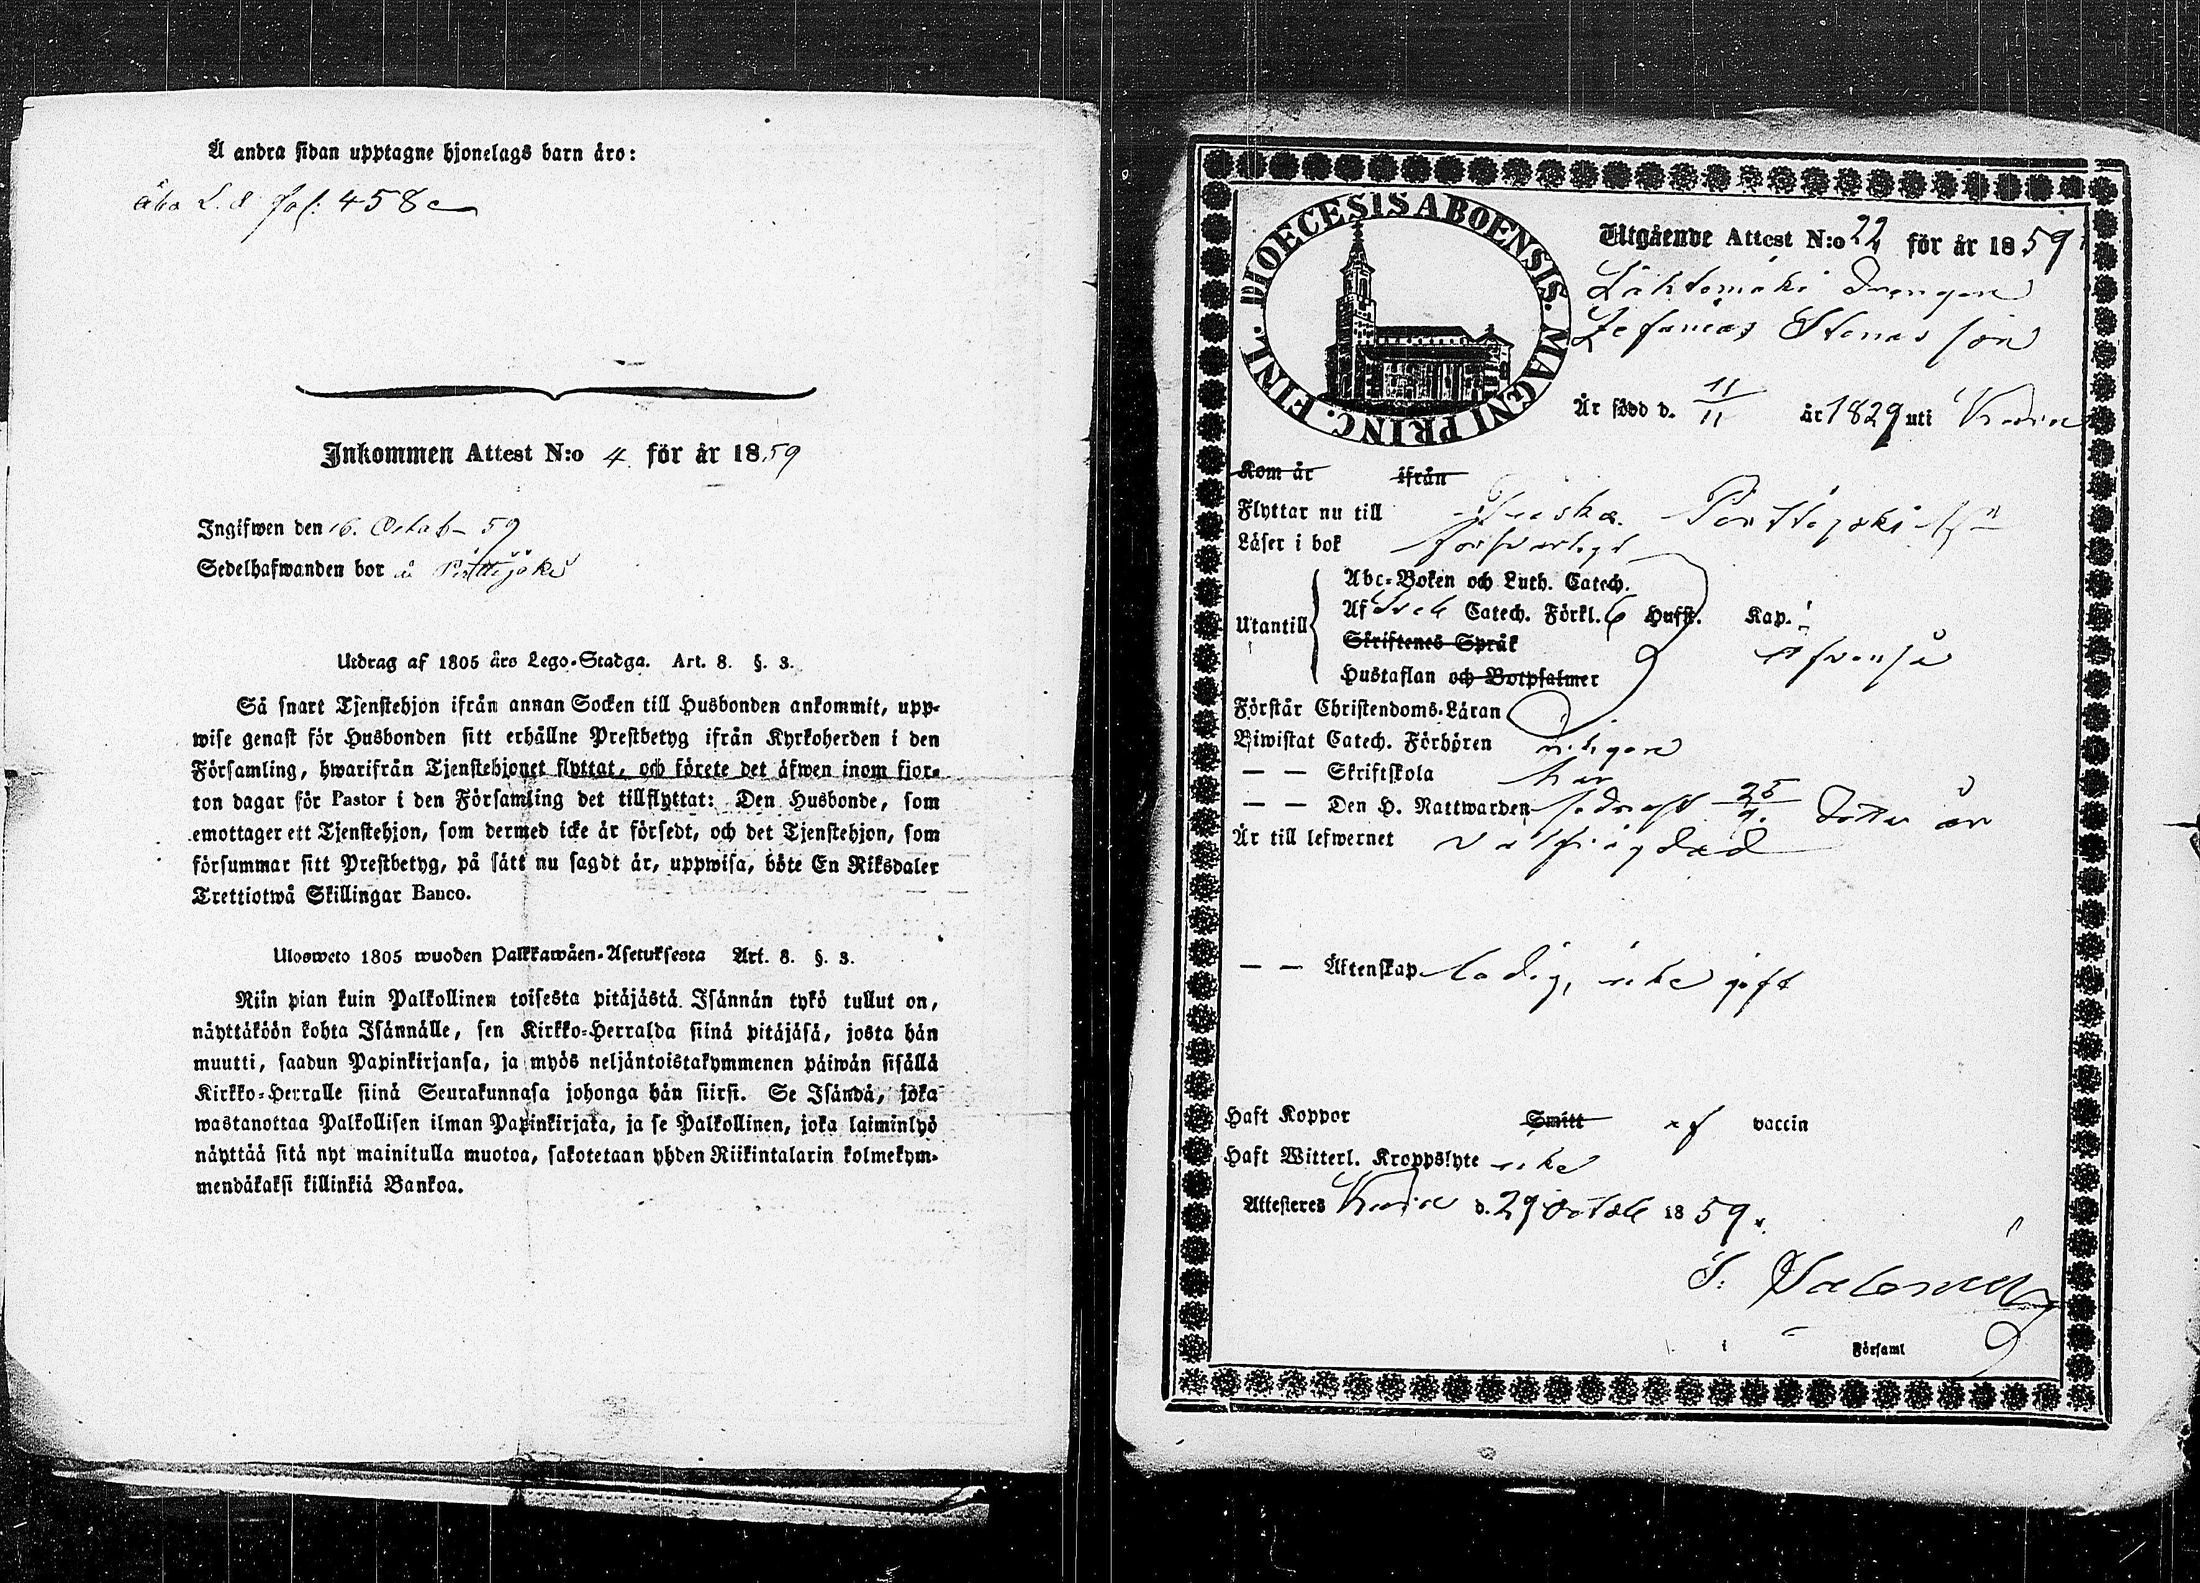 Å andra sidan upptagne hjonelags barn äro:
fol. 458
Inkommen Attest N:o 4 för år 1859
Ingifwen den 16. Octob 59
Sedelhafwanden bor å Pörttijoki
Utdrag af 1805 års Lego-Stadga. Art. 8. §. 3.
Så snart Tjenstehjon ifrån annan Socken till Husbonden ankommit, upp-
wise genast för Husbonden sitt erhållne Prestbetyg ifrån Kyrkoherden i den
Församling, hwarifrån Tjenstehjonet flyttat, och förete det äfwen inom fjor-
ton dagar för Pastor i den Församling det tillflyttat: Den Husbonde, som
emottager ett Tjenstehjon, som dermed icke är försedt, och det Tjenstehjon, som
försummar sitt Prestbetyg, på sätt nu sagdt är, uppwisa, böte En Riksdaler
Trettiotwå Skillingar Banco.
Ulosweto 1805 wuoden Palkkawäen-Asetuksesta Art. 8. §. 3.
Niin pian kuin Palkollinen toisesta pitäjästä Isännän tykö tullut on,
näyttäköön kohta Isännälle, sen Kirkko-Herralda siinä pitäjäsä, josta hän
muutti, saadun Papinkirjansa, ja myös neljäntoistakymmenen päiwän sisällä
Kirkko-Herralle siinä Seurakunnasa johonga hän siirsi. Se Isändä, joka
wastanottaa Palkollisen ilman Papinkirjata, ja se Palkollinen, joka laiminlyö
näyttää sitä nyt mainitulla muotoa, sakotetaan yhden Riikintalarin kolmekym-
mendäkaksi killinkiä Bankoa.
DIOECESIS ABOENSIS. MAGNI PRINC. FINL.
Utgående Attest N:o 22 för år 1859
Lähtömäki Drengen
Zefanias Stenasson
Är född d. 11/11 år 1829 uti
Kom år ifrån
Flyttar nu till Pörttijoki
Läser i bok försvarligt
Utantill
Abc-Boken och Luth. Catech.
Af Sveb Catech. Förkl. 6 Hufst. Kap.
Skriftenes Språk
Hustaflan och Botpsalmer
Förstår Christendoms-Läran
Biwistat Catech. Förhören
— — Skriftskola
— — Den H. Nattwarden sednast 25/9 detta år
Är till lefwernet välfrägdad
— — Äktenskap ledig, icke gift
Haft Koppor Smitt af vaccin
Haft Witterl. Kroppslyte icke
Attesteres d. 29 Octob 1859.
i Församl